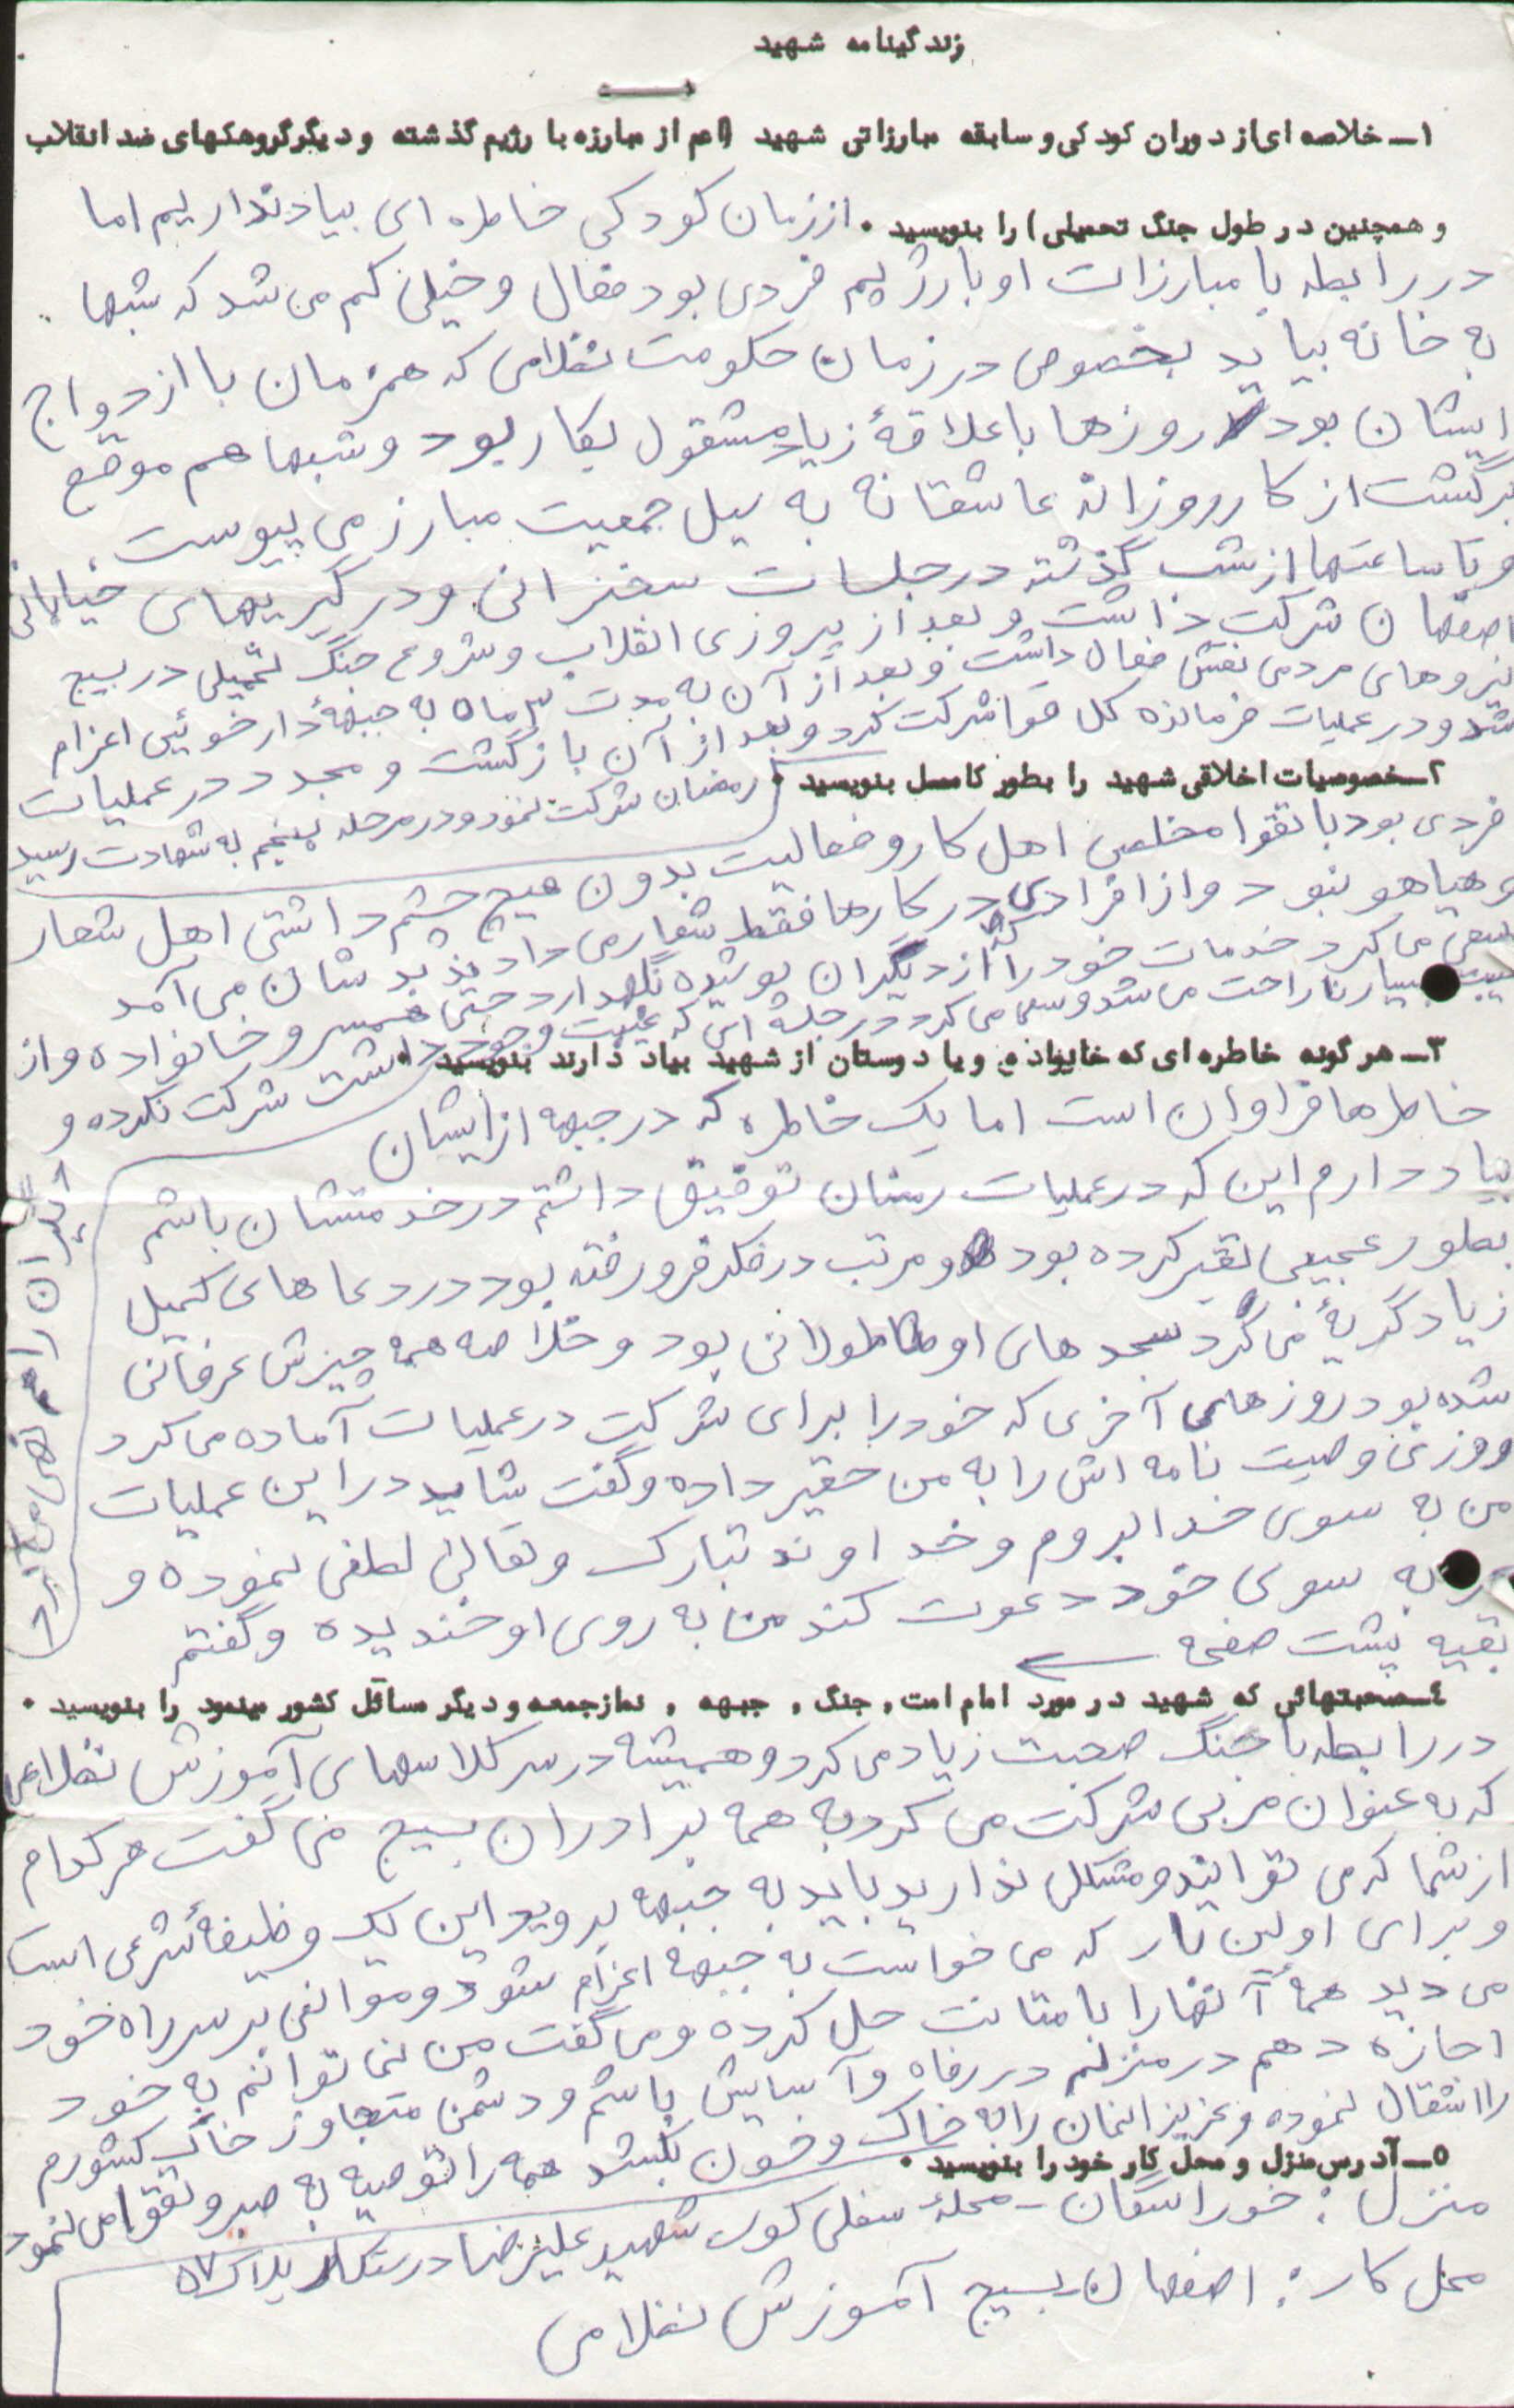 زندگینامه شهید
۱ــ خلاصه ای از دوران کودکی و سابقه مبارزاتی شهید (اعم از مبارزه با رژیم گذشته و دیگر گروهکهای ضد انقلاب
و همچنین در طول جنگ تحمیلی) را بنویسید . از زمان کودکی خاطره ای بیاد نداریم اما
در رابطه با مبارزات او با رژیم فردی بود فعال و خیلی کم می شد که شبها
به خانه بیاید بخصوص در زمان حکومت نظامی که همزمان با ازدواج
ایشان بود روزها با علاقۀ زیاد مشغول بکار بود و شبها هم موقع
برگشت از کار روزانه عاشقانه به سیل جمعیت مبارز می پیوست ،
و تا ساعتها از شب گذشته در جلسات سخنرانی و درگیریهای خیابانی
اصفهان شرکت داشت و بعد از پیروزی انقلاب و شروع جنگ تحمیلی در بسیج
نیروهای مردمی نقش فعال داشت و بعد از آن به مدت ۳ ماه به جبهۀ دارخوئین اعزام
شد و در عملیات فرمانده کل قوا شرکت کرد و بعد از آن بازگشت و مجدد در عملیات
رمضان شرکت نمود و در مرحله پنجم به شهادت رسید
۲ــ خصوصیات اخلاقی شهید را بطور کامل بنویسید .
فردی بود با تقوا مخلص اهل کار و فعالیت بدون هیچ چشم داشتی اهل شعار
و هیاهو نبود و از افرادی که در کارها فقط شعار می دادند بدشان می آمد
سعی می کرد خدمات خود را از دیگران پوشیده نگهدارد حتی همسر و خانواده و از
غیبت بسیار ناراحت می شد و سعی می کرد در جلسه ای که غیبت وجود داشت شرکت نکرده و
دیگران را هم نهی می کرد
۳ــ هر گونه خاطره ای که خانواده و یا دوستان از شهید بیاد دارند بنویسید .
خاطرها فراوان است اما یک خاطره که در جبهه از ایشان
بیاد دارم این که در عملیات رمضان توفیق داشتم در خدمتشان باشم
بطور عجیبی تغیر کرده بود و مرتب در فکر فرو رفته بود در دعاهای کمیل
زیاد گریه می کرد سجدهای او طولانی بود و خلاصه همه چیزش عرفانی
شده بود روزهای آخری که خود را برای شرکت در عملیات آماده می کرد
روزی وصیت نامه اش را به من حقیر داده و گفت شاید در این عملیات
من به سوی خدا بروم و خداوند تبارک و تعالی لطفی نموده و
مرا به سوی خود دعوت کند من به روی او خندیده و گفتم
بقیه پشت صفحه ←
٤ــ صحبتهائی که شهید در مورد امام امت ، جنگ ، جبهه ، نماز جمعه و دیگر مسائل کشور مینمود را بنویسید .
در رابطه با جنگ صحبت زیاد می کرد و همیشه در سر کلاسهای آموزش نظامی
که به عنوان مربی شرکت می کرد به همه برادران بسیج می گفت هر کدام
از شما که می توانید و مشکلی ندارید باید به جبهه بروید این یک وظیفۀ شرعی است
و برای اولین بار که می خواست به جبهه اعزام شود و موانعی بر سر راه خود
می دید همۀ آنها را با متانت حل کرده و می گفت من نمی توانم به خود
اجازه دهم در منزلم در رفاه و آسایش باشم و دشمن متجاوز خاک کشورم
را اشغال نموده و عزیزانمان را به خاک و خون بکشد همه را توصیه به صبر و تقوا می نمود
۵ــ آدرس منزل و محل کار خود را بنویسید .
منزل : خوراسگان - محلۀ سفلی کوی شهید علیرضا درستکار پلاک ۵۷
محل کار : اصفهان بسیج آموزش نظامی